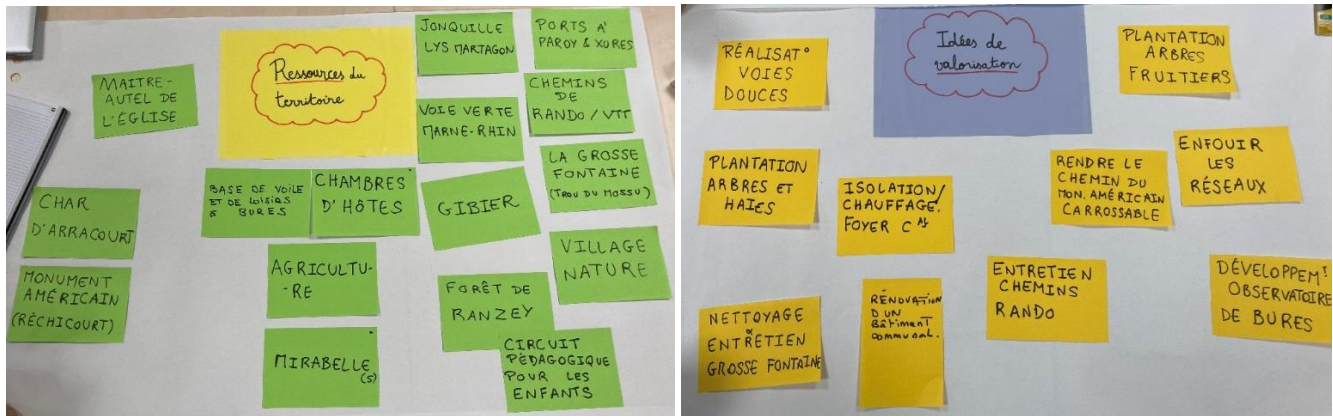 Ressources du
territoire
JONQUILLE
LYS MARTAGON
PORTS À
PAROY & XURES
MAITRE-
AUTEL DE
L'ÉGLISE
VOIE VERTE
MARNE-RHIN
CHEMINS
DE
RANDO / VTT
CHAR
D'ARRACOURT
BASE DE VOILE
ET DE LOISIRS
à BURES
CHAMBRES
D'HÔTES
GIBIER
LA GROSSE
FONTAINE
(TROU DU MOSSU)
MONUMENT
AMÉRICAIN
(RÉCHICOURT)
AGRICULTU-
-RE
FORÊT DE
RANZEY
VILLAGE
NATURE
MIRABELLE
(S)
CIRCUIT
PÉDAGOGIQUE
POUR LES
ENFANTS
Idées de
valorisation
RÉALISAT°
VOIES
DOUCES
PLANTATION
ARBRES
FRUITIERS
PLANTATION
ARBRES ET
HAIES
ISOLATION/
CHAUFFAGE
FOYER CAL
RENDRE LE
CHEMIN DU
MON. AMÉRICAIN
CARROSSABLE
ENFOUIR
LES
RÉSEAUX
NETTOYAGE
&
ENTRETIEN
GROSSE FONTAINE
RÉNOVATION
D'UN
Bâtiment
communal.
ENTRETIEN
CHEMINS
RANDO
DÉVELOPPEMT
OBSERVATOIRE
DE BURES